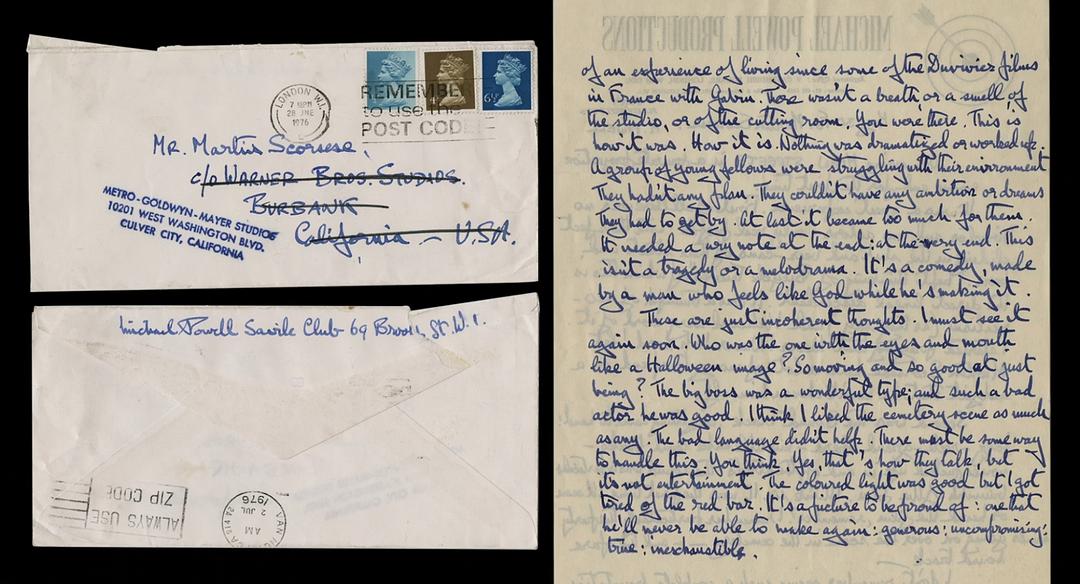 LONDON W.1.
7 30PM
28 JNE
1976
REMEMBE
to use the
POST CODE
6½P
Mr. Martin Scorsese,
c/o Warner Bros. Studios.
Burbank
California – U.S.A.
METRO-GOLDWYN-MAYER STUDIOS
10201 WEST WASHINGTON BLVD.
CULVER CITY, CALIFORNIA
Michael Powell Savile Club 69 Brook St. W.1.
ALWAYS USE
ZIP CODE
VAN
AM
2 JUL
1976
MICHAEL POWELL PRODUCTIONS
of an experience of living since some of the Duvivier films
in France with Gabin. There wasn't a breath, or a smell of
the studio, or of the cutting room. You were there. This is
how it was. How it is. Nothing was dramatized or worked up.
A group of young fellows were struggling with their environment
They hadn't any plan. They couldn't have any ambition or dreams
They had to get by. At last it became too much for them.
It needed a wry note at the end: at the very end. This
isn't a tragedy or a melodrama. It's a comedy, made
by a man who feels like God while he's making it.
These are just incoherent thoughts. I must see it
again soon. Who was the one with the eyes and mouth
like a Halloween image? So moving and so good at just
being? The big boss was a wonderful type; and such a bad
actor he was good. I think I liked the cemetery scene as much
as any. The bad language didn't help. There must be some way
to handle this. You think, Yes, that's how they talk, but
it's not entertainment. The coloured light was good but I got
tired of the red bar. It's a picture to be proud of: one that
he'll never be able to make again: generous: uncompromising:
true: inexhaustible.